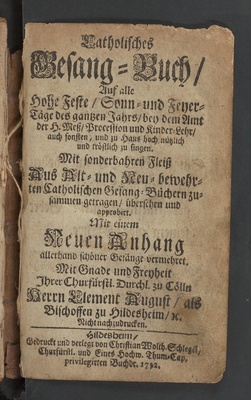 Catholisches
Gesang-Buch/
Auf alle
Hohe Feste/ Sonn- und Feyer-
Täge des gantzen Jahrs/ bey dem Amt
der H. Meß/ Procession und Kinder-Lehr/
auch sonsten, und zu Haus hoch nützlich
und tröstlich zu singen.
Mit sonderbahren Fleiß
Aus Alt- und Neu-bewehr-
ten Catholischen Gesang-Büchern zu-
sammen getragen/ übersehen und
approbirt.
Mit einem
Neuen Anhang
allerhand schöner Gesänge vermehret.
Mit Gnade und Freyheit
Ihrer Churfürstl. Durchl. zu Cölln
Herrn Clement August/ als
Bischoffen zu Hildesheim/ ꝛc.
Nicht nachzudrucken.
Hildesheim/
Gedruckt und verlegt von Christian Wolch. Schlegel,
Churfürstl. und Eines Hochw. Thum-Cap.
privilegirten Buchdr. 1792.